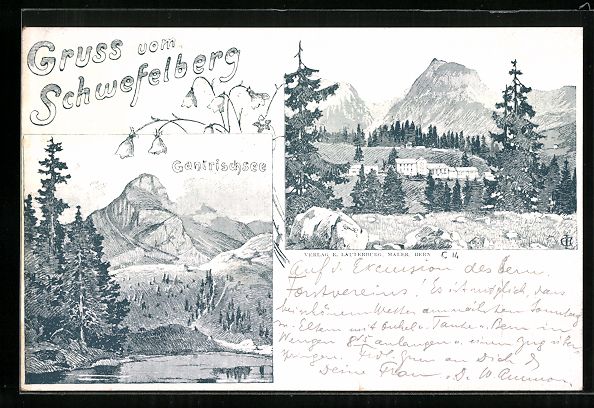 Gruss vom
Schwefelberg
Gantrischsee
VERLAG R. LATTERBURG, MALER, BERN
C 14
Auf d. Excursion des Bern.
Forstvereins! Es ist möglich, dass
bei schönem Wetter am nächsten Sonntag
m. Eltern mit Onkel u. Tante v. Bern in
anlangen u. einen Zug
Gruss an Dich &
Deine Frau